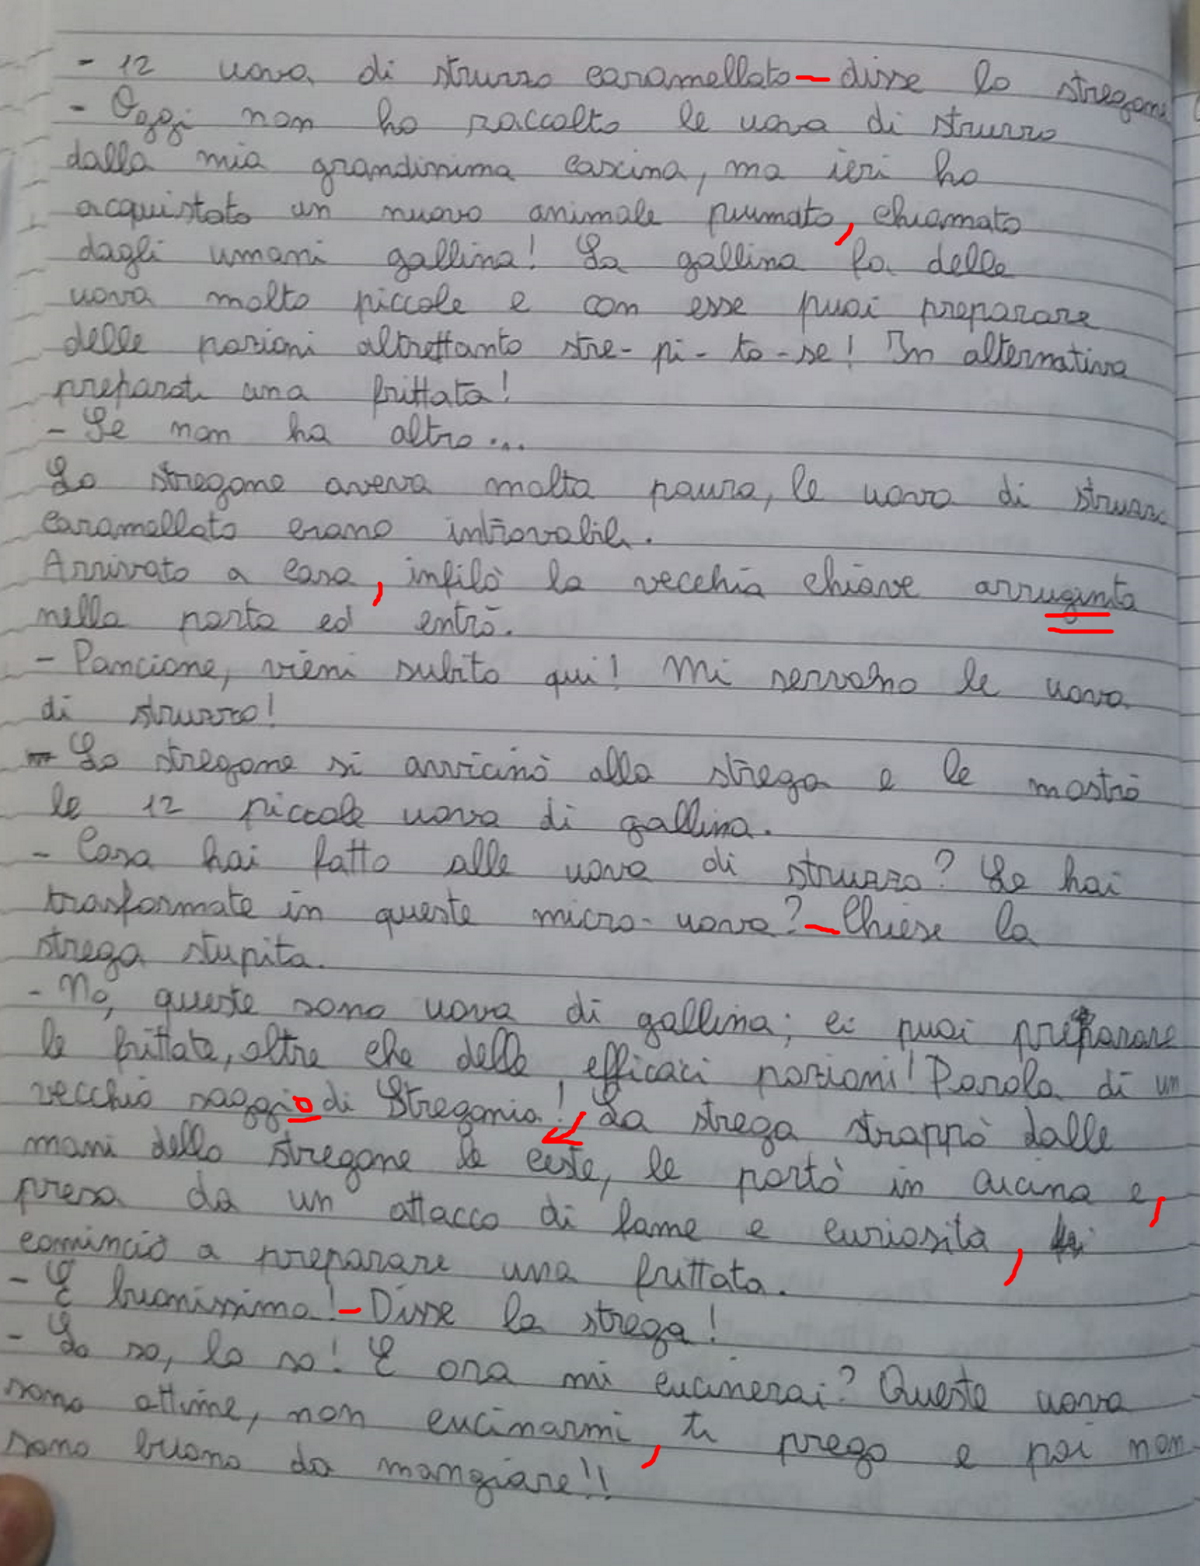 - 12 uova di struzzo caramellato - disse lo stregone
- Oggi non ho raccolto le uova di struzzo
dalla mia grandissima cascina, ma ieri ho
acquistato un nuovo animale piumato, chiamato
dagli umani gallina! La gallina fa delle
uova molto piccole e con esse puoi preparare
delle pozioni altrettanto stre-pi-to-se! In alternativa
preparati una frittata!
- Se non ha altro...
Lo stregone aveva molta paura, le uova di struzzo
caramellato erano introvabili.
Arrivato a casa, infilò la vecchia chiave arruginta
nella porta ed entrò.
- Pancione, vieni subito qui! Mi servono le uova
di struzzo!
Lo stregone si avvicinò alla strega e le mostrò
le 12 piccole uova di gallina.
- Cosa hai fatto alle uova di struzzo? Le hai
trasformate in queste micro-uova? - Chiese la
strega stupita.
- No, queste sono uova di gallina; ci puoi preparare
le frittate, oltre che delle efficaci pozioni! Parola di un
vecchio saggio di Stregonia! La strega strappò dalle
mani dello stregone le ceste, le portò in cucina e,
presa da un attacco di fame e curiosità,
cominciò a preparare una frittata.
- È buonissima! - Disse la strega!
- Lo so, lo so! E ora mi cucinerai? Queste uova
sono ottime, non cucinarmi, ti prego e poi non
sono buono da mangiare!!